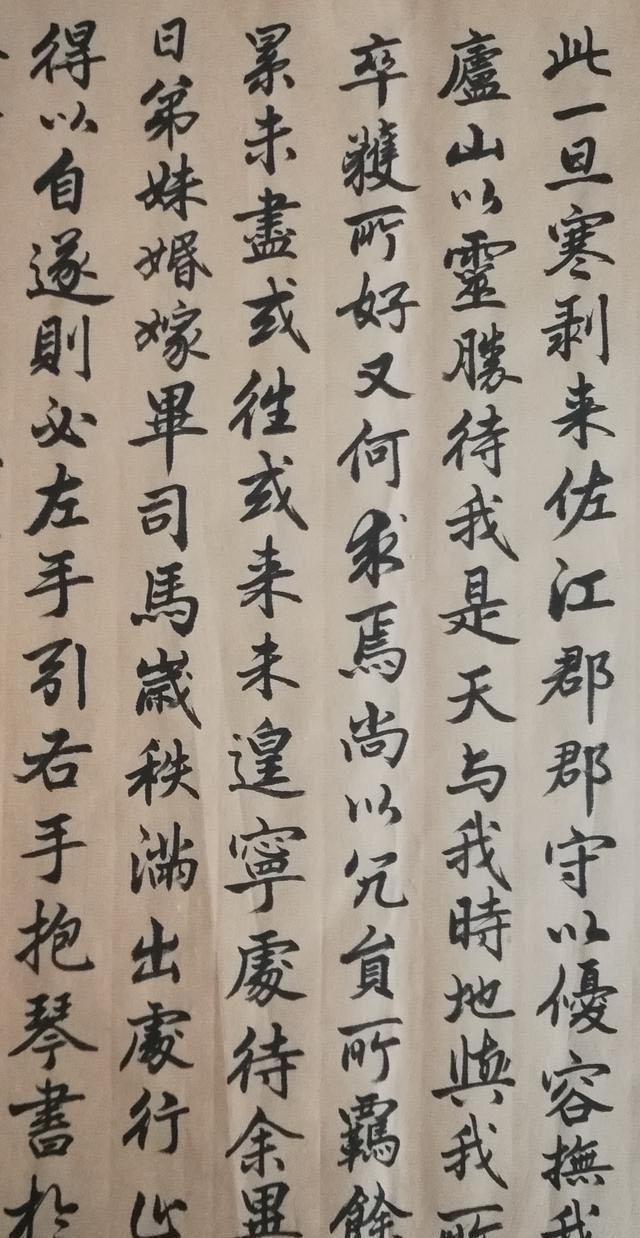 此一旦寒剥来佐江郡郡守以優容撫我
廬山以靈勝待我是天与我時地與我所
卒獲所好又何求焉尚以冗員所羈餘
累未盡或往或来未遑寧處待余異
日弟妹婚嫁畢司馬歲秩滿出處行止
得以自遂則必左手引右手抱琴書於